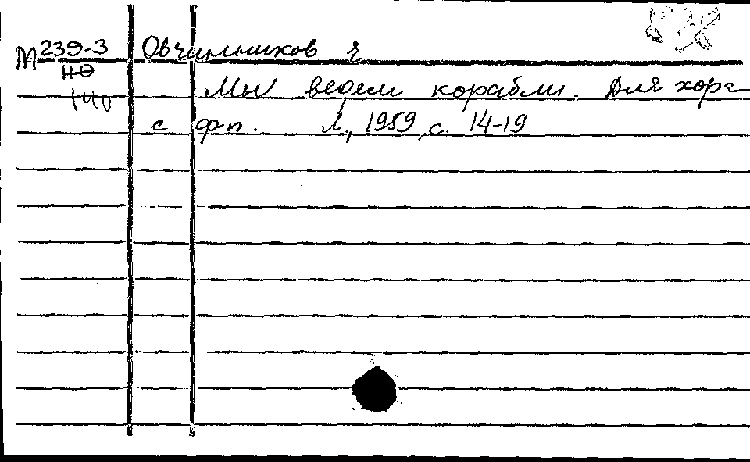 М 239-3 Овчинников Я
но
140 Мы ведем корабли. Для хора
с фп. Л., 1959, с. 14-19